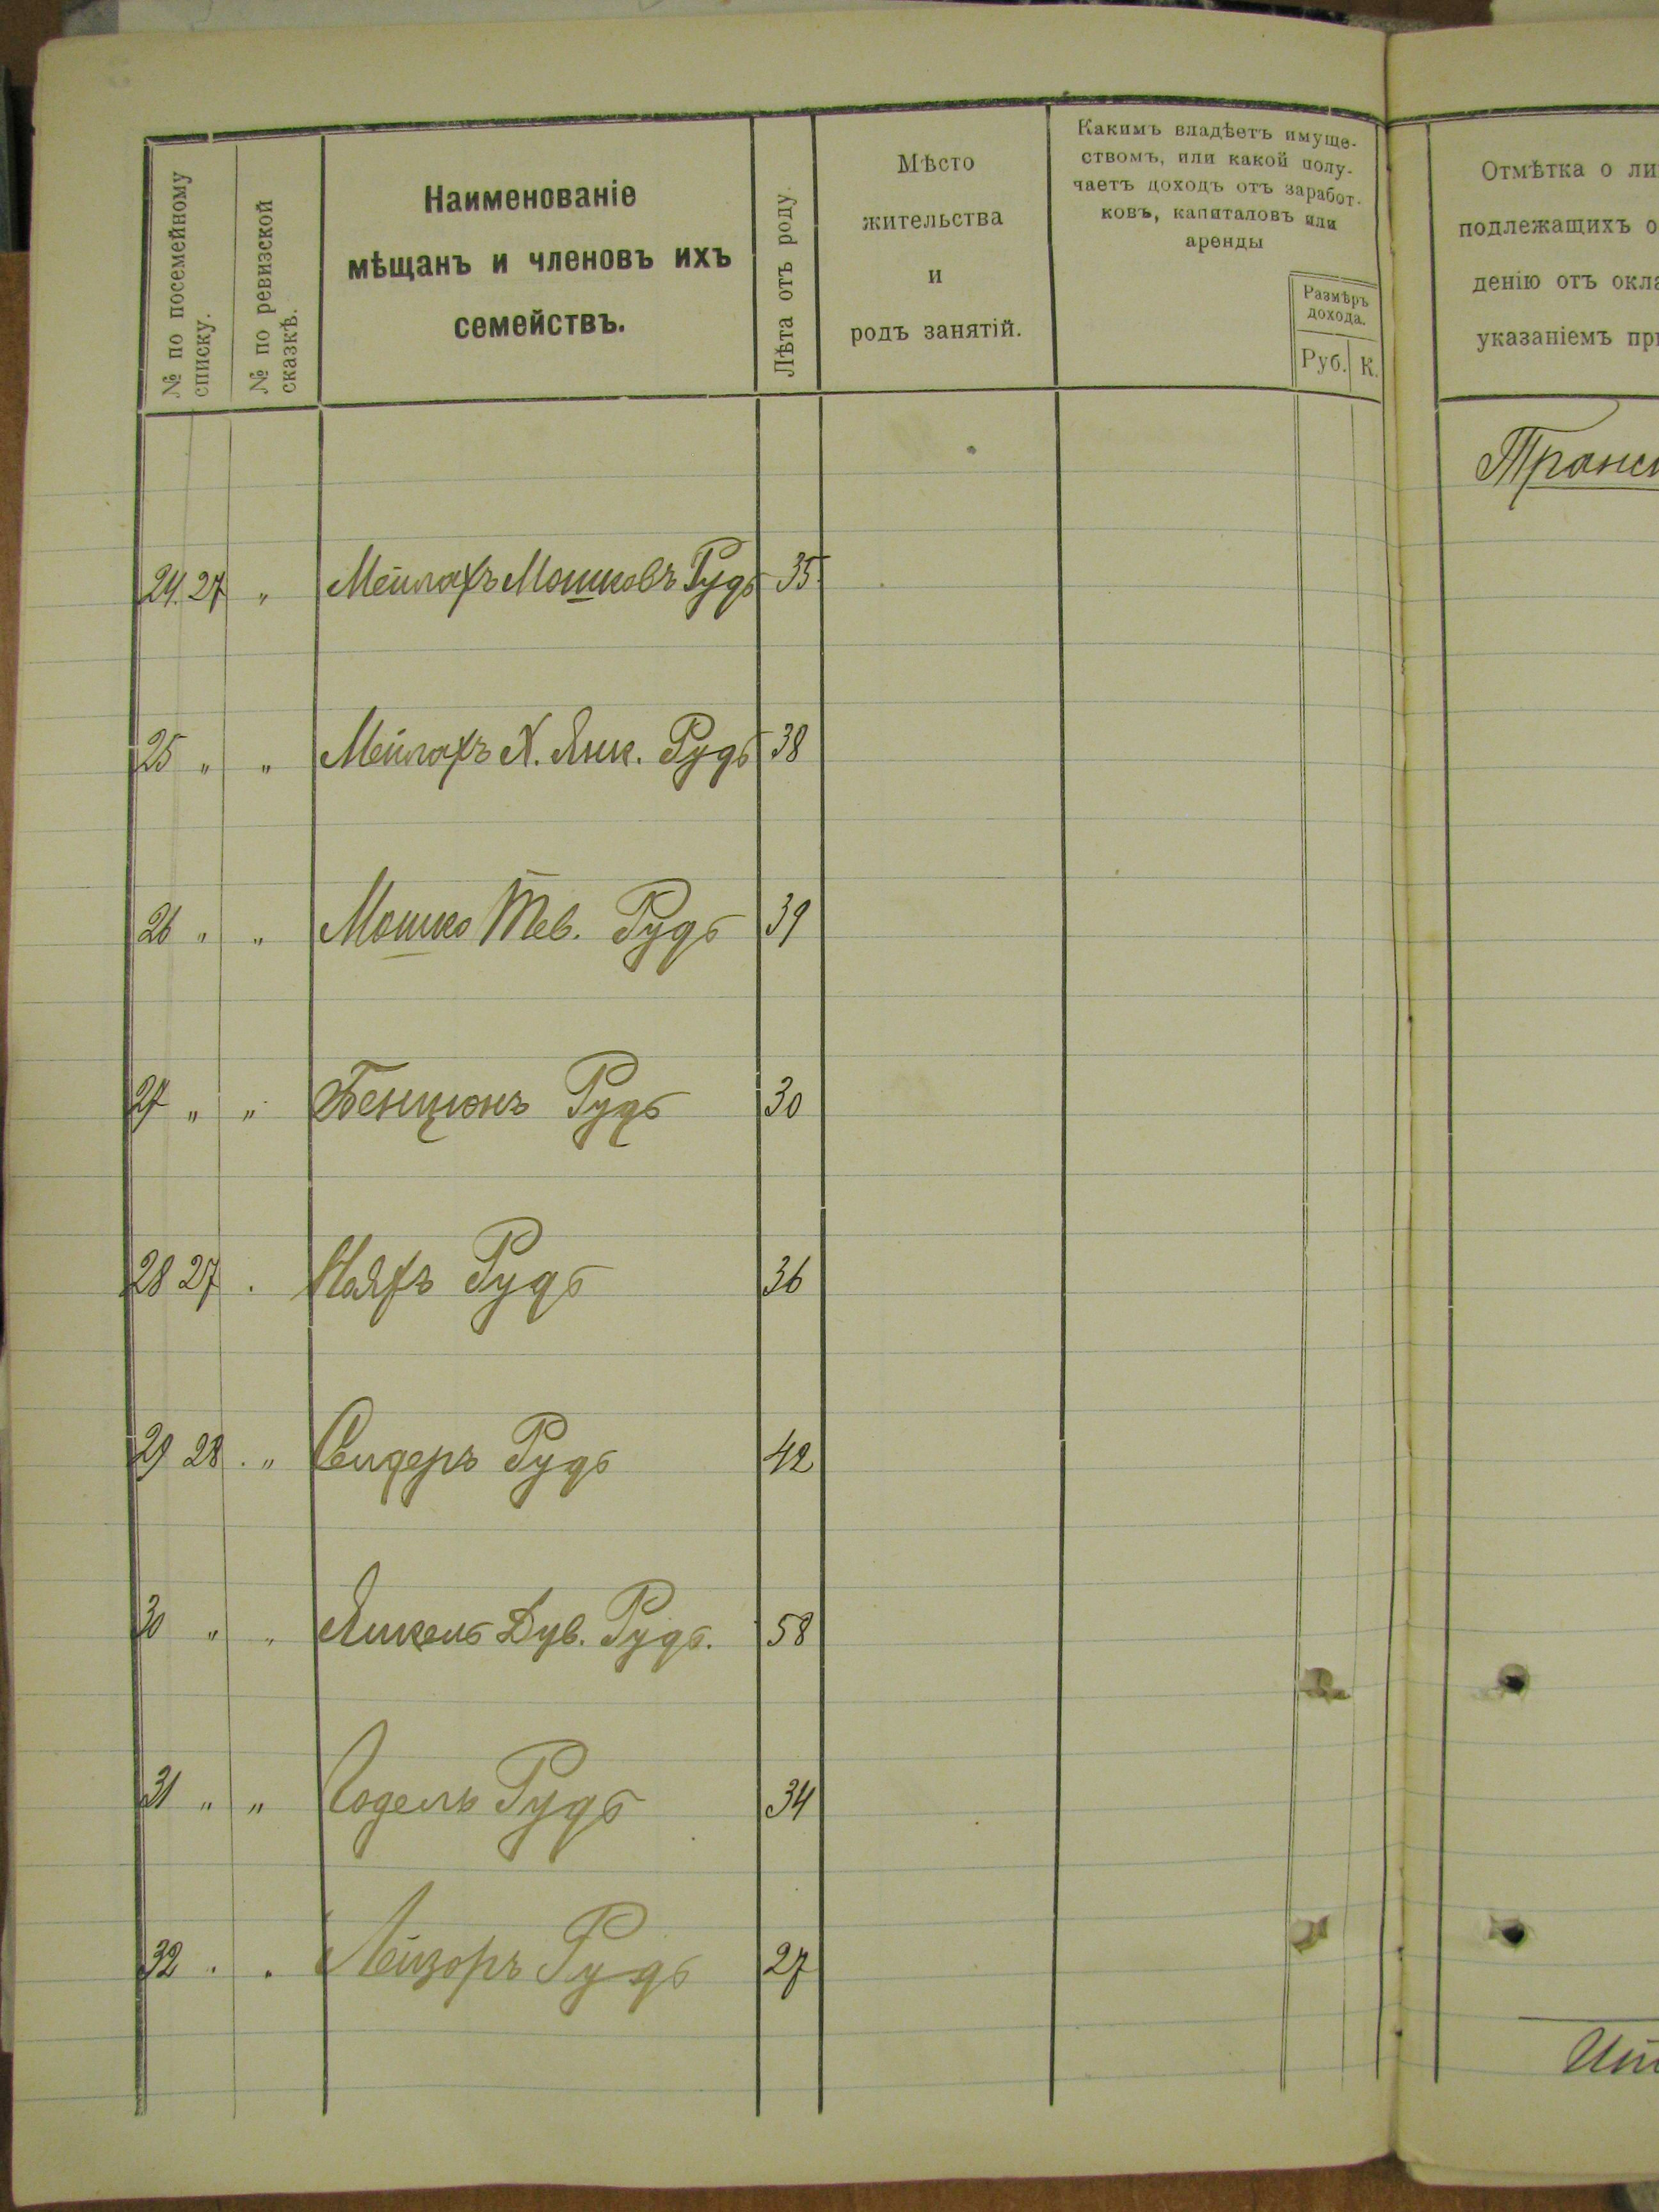 № по посемейному
списку.
№ по ревизской
сказкѣ.
Наименованіе
мѣщанъ и членовъ ихъ
семействъ.
Лѣта отъ роду.
Мѣсто
жительства
и
родъ занятій.
Какимъ владѣетъ имуще-
ствомъ, или какой полу-
чаетъ доходъ отъ заработ-
ковъ, капиталовъ или
аренды
Размѣръ
дохода.
Руб. К.
Отмѣтка о ли
подлежащихъ о
денію отъ окла
указаніемъ при
Транс
24. 27 „ Мейлахъ Мошковъ Рудь 35
25 „ „ Мейлахъ Х. Янк. Рудь 38
26 „ „ Мошко Тев. Рудь 39
27 „ „ Бенціонъ Рудь 30
28 27 . Нояхъ Рудь 36
29 28 . „ Сендеръ Рудь 42
30 „ „ Янкель Дув. Рудь. 58
31 „ „ Годель Рудь 34
32 . . Лейзоръ Рудь 27
Ит